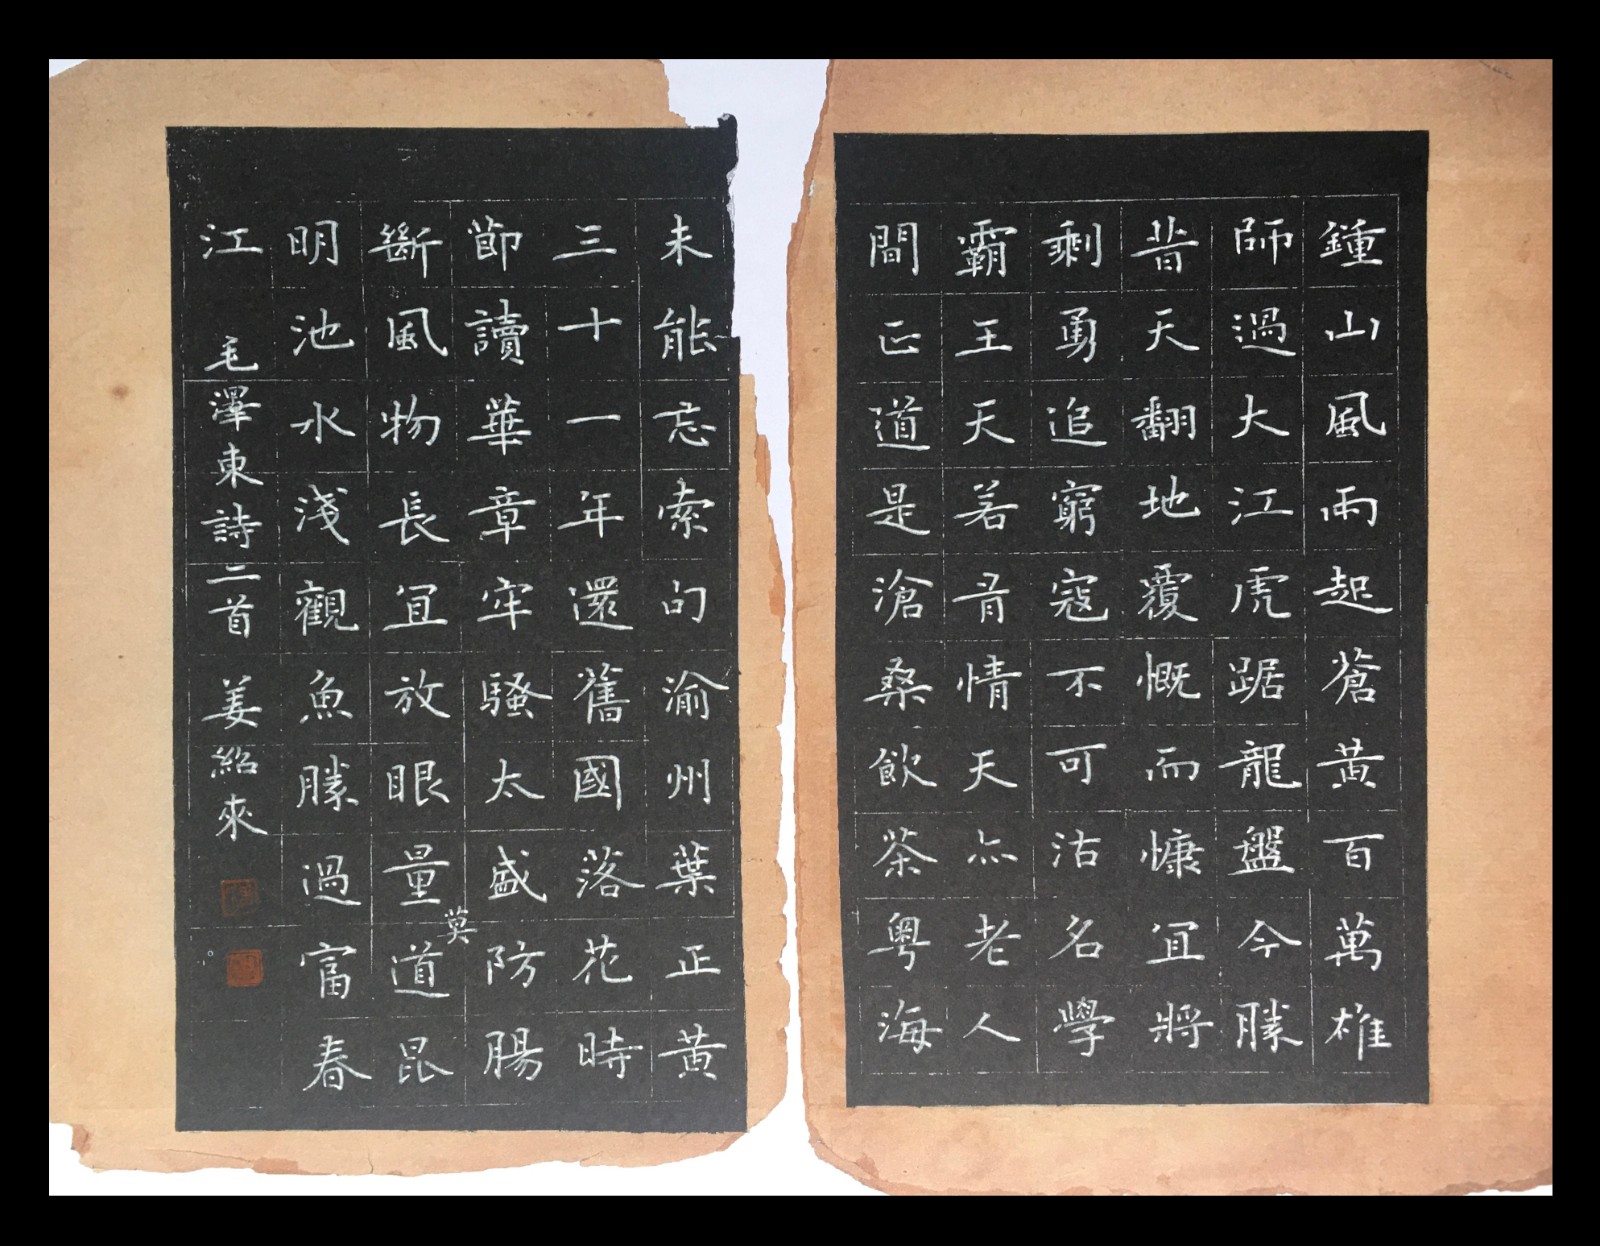 鍾山風雨起蒼黃百萬雄
師過大江虎踞龍盤今勝
昔天翻地覆慨而慷冝將
剩勇追窮寇不可沽名學
霸王天若有情天亦老人
間正道是滄桑飲茶粵海
未能忘索句渝州葉正黃
三十一年還舊國落花時
節讀華章牢騷太盛防腸
斷風物長冝放眼量莫道昆
明池水淺觀魚勝過富春
江 毛澤東詩二首 姜紹來